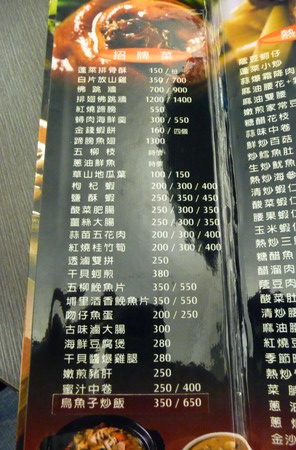 招牌菜
蓬萊排骨酥 150/份
白片放山雞 350/700
佛跳牆 700/900
排翅佛跳牆 1200/1400
紅燒蹄膀 550
鱘肉海鮮羹 250/350
金錢蝦餅 160/四個
蹄膀魚翅 1300
五柳枝 時價
蔥油鮮魚 時價
草山地瓜葉 100/150
枸杞蝦 200/300/400
鹽酥蝦 250/350/450
酸菜肥腸 250/300/350
薑絲大腸 250/300/350
蒜苗五花肉 200/300/400
紅燒桂竹筍 200/300/400
透滷雙拼 250
干貝蚵煎 380
五柳鮸魚片 350/550
埔里酒香鮸魚片 350/550
吻仔魚蛋 200/250
古味滷大腸 300
海鮮豆腐煲 280
干貝醬爆雞腿 280
嫩煎豬肝 250
蜜汁中卷 250/400
烏魚子炒飯 350/650
熱
蔭豆蚵仔
蓬萊小炒
蒜爆霜降肉
麻油腰花
麻油雙腰
嫩煎家常
糖醋花枝
蒜味中卷
鮮炒百菇
炒鱈魚肚
生炒魷魚
熱炒海參
清炒蝦仁
酸菜蝦仁
腰果蝦仁
玉米蝦仁
熱炒三
糖醋
醋溜
蔭豉
酸菜肚
清炒
麻油
紅燒豆
熱炒
菜脯
季節
蔥油
金沙